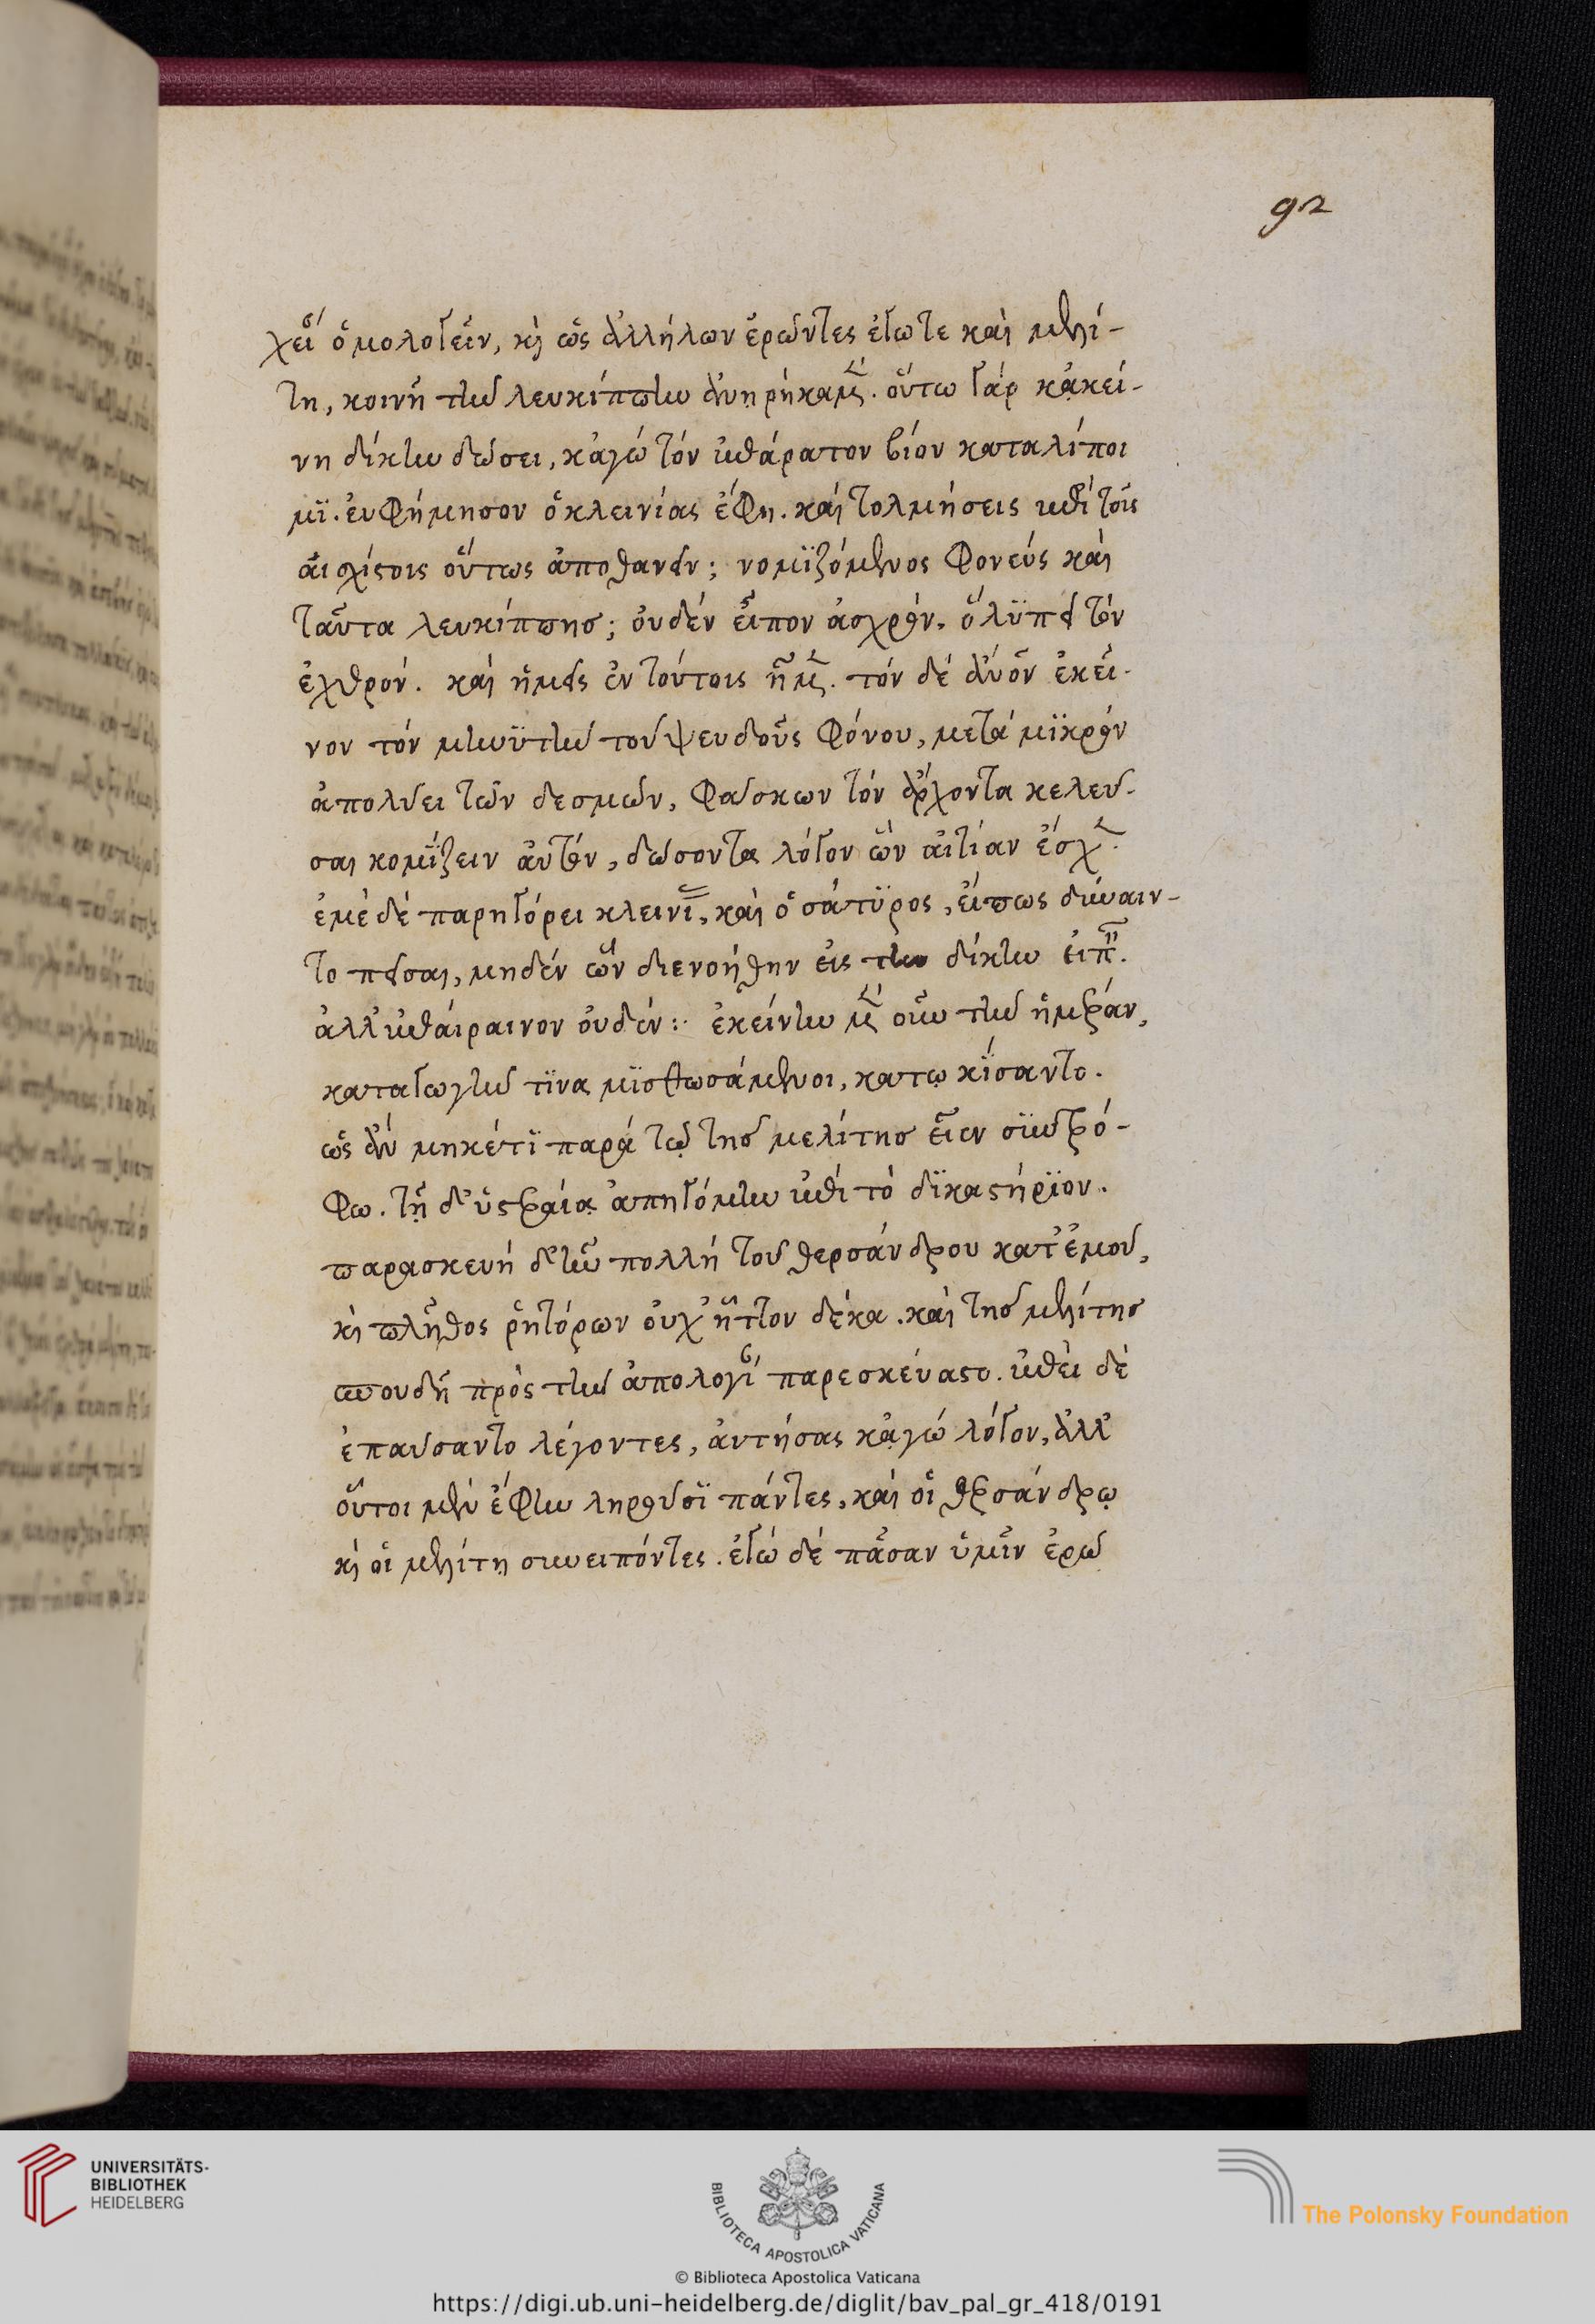 92
χεῖ ὁμολογεῖν, κὶ ὡς ἀλλήλων ἐρῶντες ἐγώ τε καὶ μελί-
τη, κοινῇ τὴν λευκίππην ἀνῃρήκαμεν. οὕτω γάρ κἀκεί-
νη δίκην δώσει, κἀγώ τόν ἐπάρατον βίον καταλίποι
μϊ. ἐυφήμησον ὁ κλεινίας ἔφη. καὶ τολμήσεις ἐπὶ τοῖς
αἰσχίστοις οὕτως ἀποθανεῖν; νομϊζόμενος φονεύς καὶ
ταῦτα λευκίππησ; ὀυδέν εἶπον ἀσχρόν. ὃ λϋπεῖ τόν
ἐχθρόν. καὶ ἡμεῖς ἐν τούτοις ἦμεν. τόν δέ ἀνον ἐκεῖ-
νον τόν μηνϋτὴν τοῦ ψευδοῦς φόνου, μετά μϊκρόν
ἀπολύει τῶν δεσμῶν, φάσκων τόν ἄρχοντα κελεῦ-
σαι κομΐζειν ἀυτόν, δώσοντα λόγον ὧν ἀιτίαν ἔσχεν.
ἐμὲ δὲ παρηγόρει κλεινίας, καὶ ὁ σάτϋρος, ἐίπως δύναιν-
το πεῖσαι, μηδέν ὧν διενοήθην εἰς τὴν δίκην ἐιπεῖν.
ἀλλ' ἐπέραινον ὀυδέν: ἐκείνην μὲν οὖν τὴν ἡμέραν,
καταγωγήν τϊνα μϊσθωσάμενοι, κατῳκΐσαντο.
ὡς ἂν μηκέτϊ παρά τῷ τῆσ μελίτησ εἶεν συντρό-
φω. τῇ δ' ὑστεραίᾳ ἀπηγόμην ἐπὶ τὸ δϊκαστήρϊον.
παρασκευή δ' ἦν πολλή τοῦ θερσάνδρου κατ' ἐμοῦ,
κὶ πλῆθος ῥητόρων ὀυχ ἧττον δέκα. καὶ τῆσ μελίτησ
σπουδῇ πρὸς τὴν ἀπολογίαν παρεσκεύαστο. ἐπεὶ δὲ
ἐπαύσαντο λέγοντες, ἀιτήσας κἀγώ λόγον, ἀλλ'
οὗτοι μὲν ἔφην ληροῦσϊ πάντες, καὶ οἱ θερσάνδρῳ
κὶ οἱ μελίτῃ συνειπόντες. ἐγώ δέ πᾶσαν ὑμῖν ἐρῶ
UNIVERSITÄTS-
BIBLIOTHEK
HEIDELBERG
BIBLIOTECA APOSTOLICA VATICANA
The Polonsky Foundation
© Biblioteca Apostolica Vaticana
https://digi.ub.uni-heidelberg.de/diglit/bav_pal_gr_418/0191